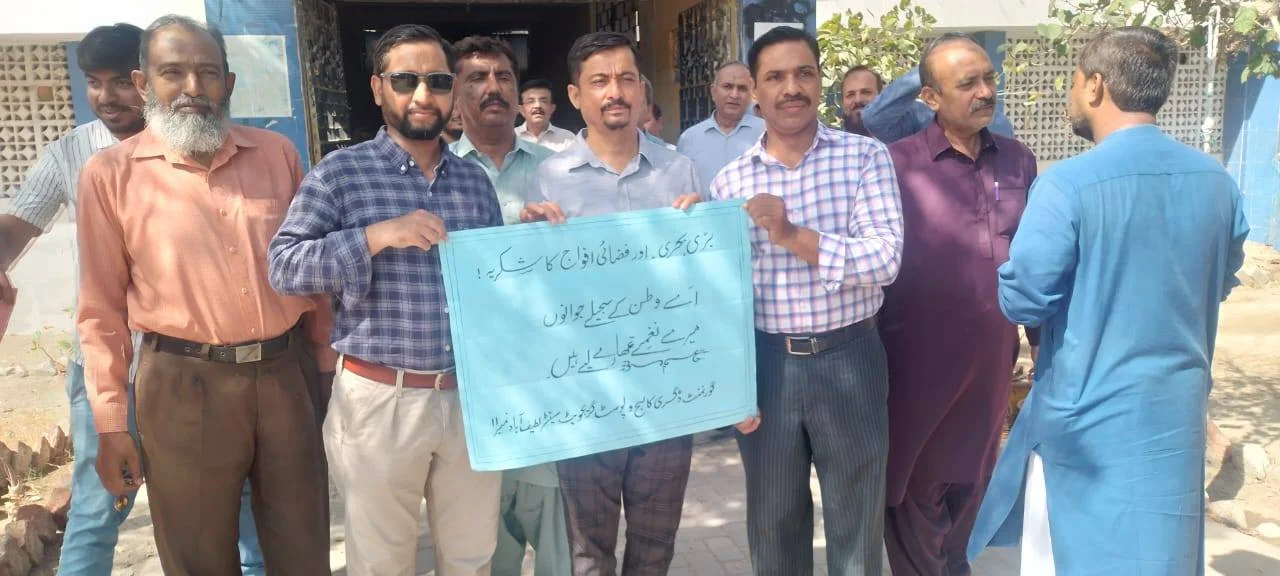 بری بحری. اور فضائی افواج کا شکریہ!
اے وطن کے سجیلے جوانوں
میرے نغمے تمھارے لیے ہیں.
گورنمنٹ ڈگری کالج و پوسٹ گریجویٹ سینٹر لطیف آباد نمبر 11